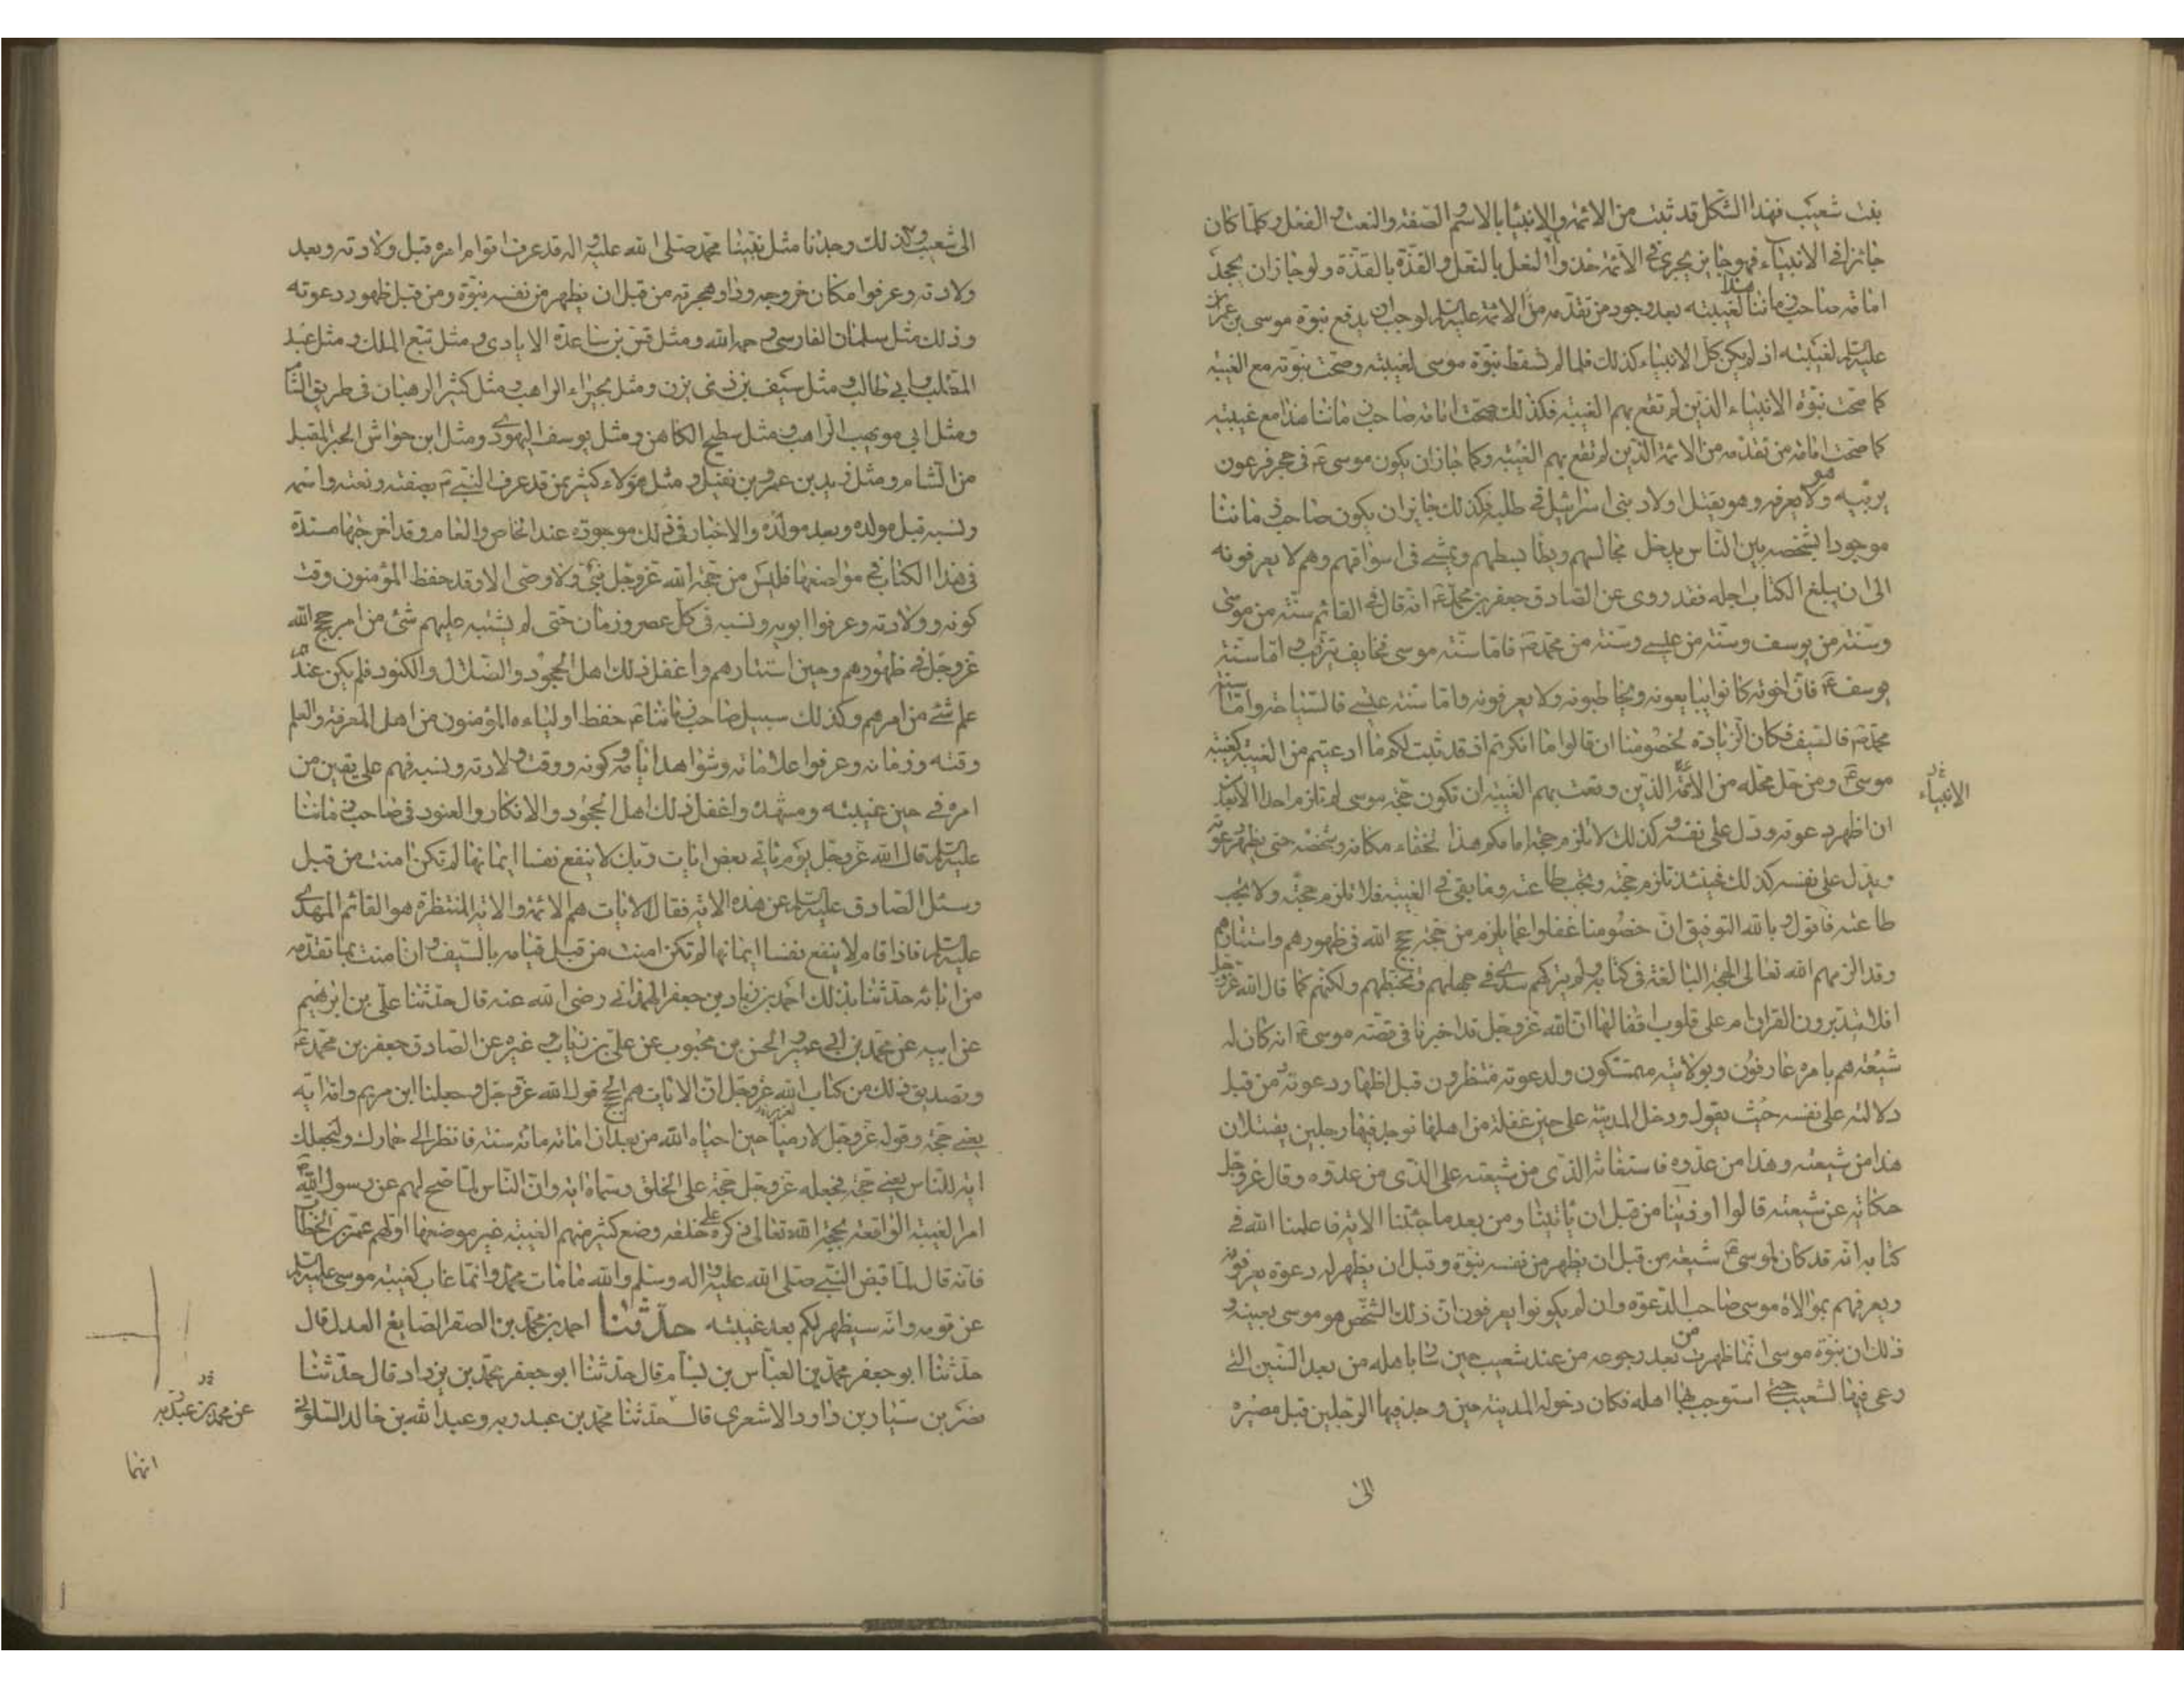 بنت شعيب فهذا الشكل قد ثبت من الائمة والانبيا بالاسم والصفة والنعت والفعل وكلما كان
جائزا في الانبياء فهو جايز يجري في الائمة حذو النعل بالنعل والقذة بالقذة ولو جاز ان يجحد
امامة صاحب زماننا هذا لغيبته بعد وجود من تقدمه من الائمة عليهم السلم لوجب ان يدفع نبوة موسى بن عمران
عليه السلم لغيبته اذ لم يكن كل الانبياء كذلك فلما لم تسقط نبوة موسى لغيبته وصحت نبوته مع الغيبة
كما صحت نبوة الانبياء الذين لم تقع بهم الغيبة فكذلك صحت امامة صاحب زماننا هذا مع غيبته
كما صحت امامة من تقدمه من الائمة الذين لم تقع بهم الغيبة وكما جاز ان يكون موسى ع في حجر فرعون
يربيه وهو لا يعرفه وهو يقتل اولاد بني اسرائيل في طلبه فكذلك جايز ان يكون صاحب زماننا
موجودا بشخصه بين الناس يدخل مجالسهم ويطا بسطهم ويمشي في اسواقهم وهم لا يعرفونه
الى ان يبلغ الكتاب اجله فقد روى عن الصادق جعفر بن محمد ع انه قال في القائم سنة من موسى
وسنة من يوسف وسنة من عيسى وسنة من محمد ص فاما سنة موسى فخايف يترقب واما سنة
يوسف ع فان اخوته كانوا يبايعونه ويخاطبونه ولا يعرفونه واما سنة عيسى فالسياحة واما سنة
محمد ص فالسيف فكان الزيادة لخصومنا ان قالوا ما انكرتم اذ قد ثبت لكم ما ادعيتم من الغيبة كغيبة
موسى ع ومن حل محله من الائمة الذين وقعت بهم الغيبة ان تكون حجة موسى لم تلزم احدا الا بعد
الانبياء
ان اظهر دعوته ودل على نفسه وكذلك لا تلزم حجة امامكم هذا لخفاء مكانه وشخصه حتى يظهر دعوته
ويدل على نفسه كذلك فحينئذ تلزم حجته وتجب طاعته وما بقى في الغيبة فلا تلزم حجته ولا تجب
طاعته فاقول وبالله التوفيق ان خصومنا غفلوا عما يلزم من حجة حجج الله في ظهورهم واستتارهم
وقد الزمهم الله تعالى الحجة البالغة في كتابه ولم يتركهم سدى في جهلهم وتخبطهم ولكنهم كما قال الله عز وجل
افلا يتدبرون القران ام على قلوب اقفالها ان الله عز وجل قد اخبرنا في قصة موسى ع انه كان له
شيعة هم بامره عارفون وبولايته متمسكون ولدعوته منتظرون قبل اظهار دعوته ومن قبل
دلالته على نفسه حيث يقول ودخل المدينة على حين غفلة من اهلها فوجد فيها رجلين يقتتلان
هذا من شيعته وهذا من عدوه فاستغاثه الذي من شيعته على الذي من عدوه وقال عز وجل
حكاية عن شيعته قالوا اوذينا من قبل ان تاتينا ومن بعد ما جئتنا الاية فاعلمنا الله في
كتابه انه قد كان لموسى ع شيعة من قبل ان يظهر من نفسه نبوة وقبل ان يظهر له دعوة يعرفونه
ويعرفهم بموالاة موسى صاحب الدعوة وان لم يكونوا يعرفون ان ذلك الشخص هو موسى بعينه و
ذلك ان نبوة موسى انما ظهرت من بعد رجوعه من عند شعيب حين سار باهله من بعد السنين التي
رعى فيها لشعيب حتى استوجب بها اهله فكان دخوله المدينة حين وجد فيها الرجلين قبل مصيره
الى
الى شعيب وكذلك وجدنا مثل نبينا محمد صلى الله عليه واله قد عرف اقوام امره قبل ولادته وبعد
ولادته وعرفوا مكان خروجه ودار هجرته من قبل ان يظهر من نفسه نبوة ومن قبل ظهور دعوته
وذلك مثل سلمان الفارسي رحمه الله ومثل قس بن ساعدة الايادي ومثل تبع الملك ومثل عبد
المطلب وابي طالب ومثل سيف بن ذي يزن ومثل بحيراء الراهب ومثل كثير الرهبان في طريق الشام
ومثل ابي مويهب الراهب ومثل سطيح الكاهن ومثل يوسف اليهودي ومثل ابن حواش الحبر المقبل
من الشام ومثل زيد بن عمرو بن نفيل ومثل هؤلاء كثير ممن قد عرف النبي ص بصفته ونعته واسمه
ونسبه قبل مولده وبعد مولده والاخبار في ذلك موجودة عند الخاص والعام وقد اخرجتها مسندة
في هذا الكتاب في مواضعها فليس من حجة الله عز وجل نبي ولا وصى الا وقد حفظ المؤمنون وقت
كونه وولادته وعرفوا ابويه ونسبه في كل عصر وزمان حتى لم يشتبه عليهم شئ من امر حجج الله
عز وجل في ظهورهم وحين استتارهم واغفل ذلك اهل الجحود والضلال والكنود فلم يكن عندهم
علم شئ من امرهم وكذلك سبيل صاحب زماننا ع حفظ اولياءه المؤمنون من اهل المعرفة والعلم
وقته وزمانه وعرفوا علاماته وشواهد ايامه وكونه ووقت ولادته ونسبه فهم على يقين من
امره في حين غيبته ومشهده واغفل ذلك اهل الجحود والانكار والعنود في صاحب زماننا
عليه السلم قال الله عز وجل يوم ياتي بعض ايات ربك لا ينفع نفسا ايمانها لم تكن امنت من قبل
وسئل الصادق عليه السلم عن هذه الاية فقال الايات هم الائمة والاية المنتظرة هو القائم المهدي
عليه السلم فاذا قام لا ينفع نفسا ايمانها لم تكن امنت من قبل قيامه بالسيف وان امنت بما تقدمه
من ابائه حدثنا بذلك احمد بن زياد بن جعفر الهمداني رضي الله عنه قال حدثنا علي بن ابرهيم
عن ابيه عن محمد بن ابي عمير والحسن بن محبوب عن علي بن رئاب وغيره عن الصادق جعفر بن محمد ع
وتصديق ذلك من كتاب الله عز وجل ان الايات هم الحجج قول الله عز وجل وجعلنا ابن مريم وامه اية
يعني حجة وقوله عز وجل لارميا حين احياه الله من بعد ان اماته مائة سنة فانظر الى حمارك ولنجعلك
اية للناس يعني حجة فجعله عز وجل حجة على الخلق وسماه اية وان الناس لما صح لهم عن رسول الله ص
امر الغيبة الواقعة بحجة الله تعالى ذكره على خلقه وضع كثير منهم الغيبة غير موضعها اولهم عمر بن الخطاب
فانه قال لما قبض النبي صلى الله عليه واله وسلم والله ما مات محمد وانما غاب كغيبة موسى عليه السلم
عن قومه وانه سيظهر لكم بعد غيبته حدثنا احمد بن محمد بن الصقر الصايغ العدل قال
حدثنا ابو جعفر محمد بن العباس بن بسام قال حدثنا ابو جعفر محمد بن يزداد قال حدثنا
نصر بن سيار بن داود الاشعري قال حدثنا محمد بن عبد ربه وعبد الله بن خالد السلولي
عن محمد بن عبد ربه
انهما